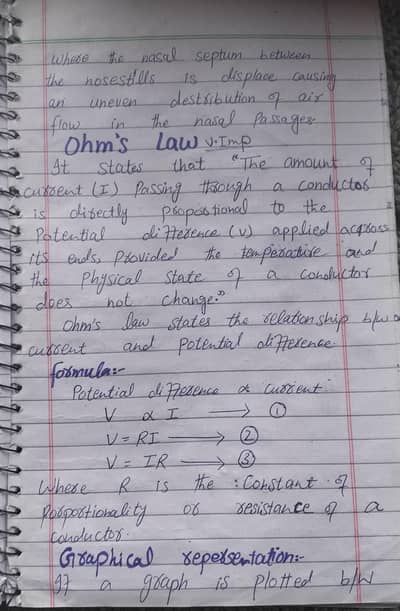 where the nasal septum between
the nosestills is displace causing
an uneven destribution of air
flow in the nasal Passages.
Ohm's Law V.Imp
It states that "The amount of
current (I) Passing through a conductor
is directly proportional to the
Potential difference (V) applied across
its ends, Provided the temperative and
the Physical state of a conductor
does not change."
Ohm's law states the relationship b/w
current and potential difference.
formula:-
Potential difference ∝ current
V ∝ I ⟶ ①
V = RI ⟶ ②
V = IR ⟶ ③
Where R is the : Constant of
Porportionality or resistance of a
conductor.
Graphical repersentation:-
If a graph is plotted b/w